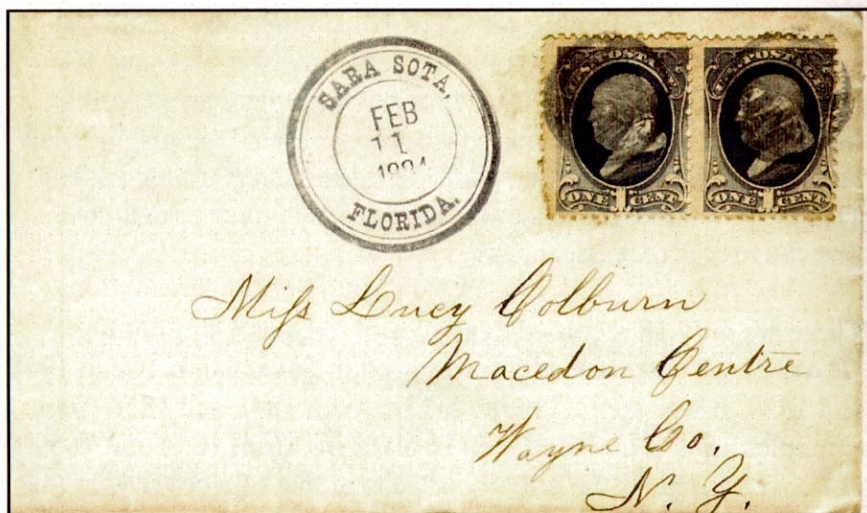 SARA SOTA,
FEB
11
FLORIDA.
U.S. POSTAGE
ONE 1 CENT
U.S. POSTAGE
ONE 1 CENT
Miss Lucy Colburn
Macedon Centre
Wayne Co.
N. Y.